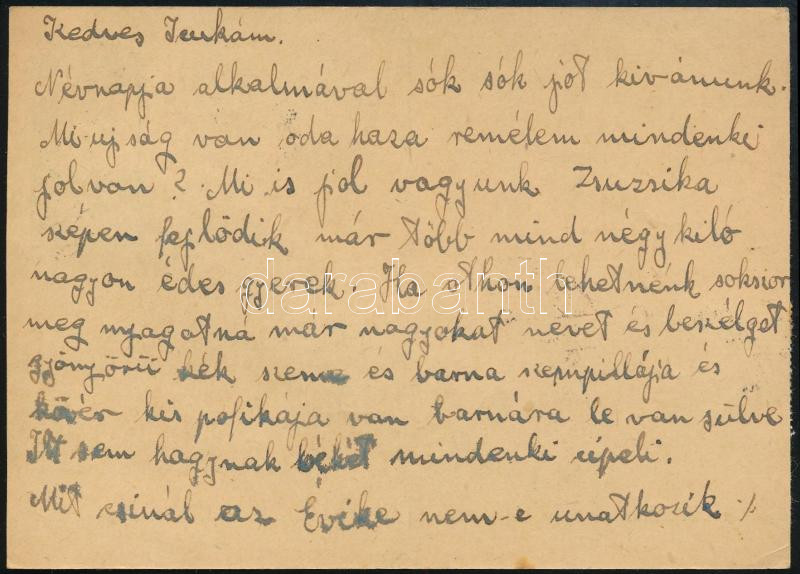 Kedves Icukám.
Névnapja alkalmával sók sók jót kivánunk.
Mi ujság van oda haza remélem mindenki
jól van? Mi is jól vagyunk Zsuzsika
szépen fejlödik már több mind négy kiló
nagyon édes gyerek. Ha othon lehetnénk soksior
meg nyagatná már nagyokat nevet és beszélget
gyönyörü kék szeme és barna szempillája és
kövér kis pofikája van barnára le van sülve
Itt sem hagynak békét mindenki
Mit csinál az Évike nem-e unatkozik ./.
darabanth